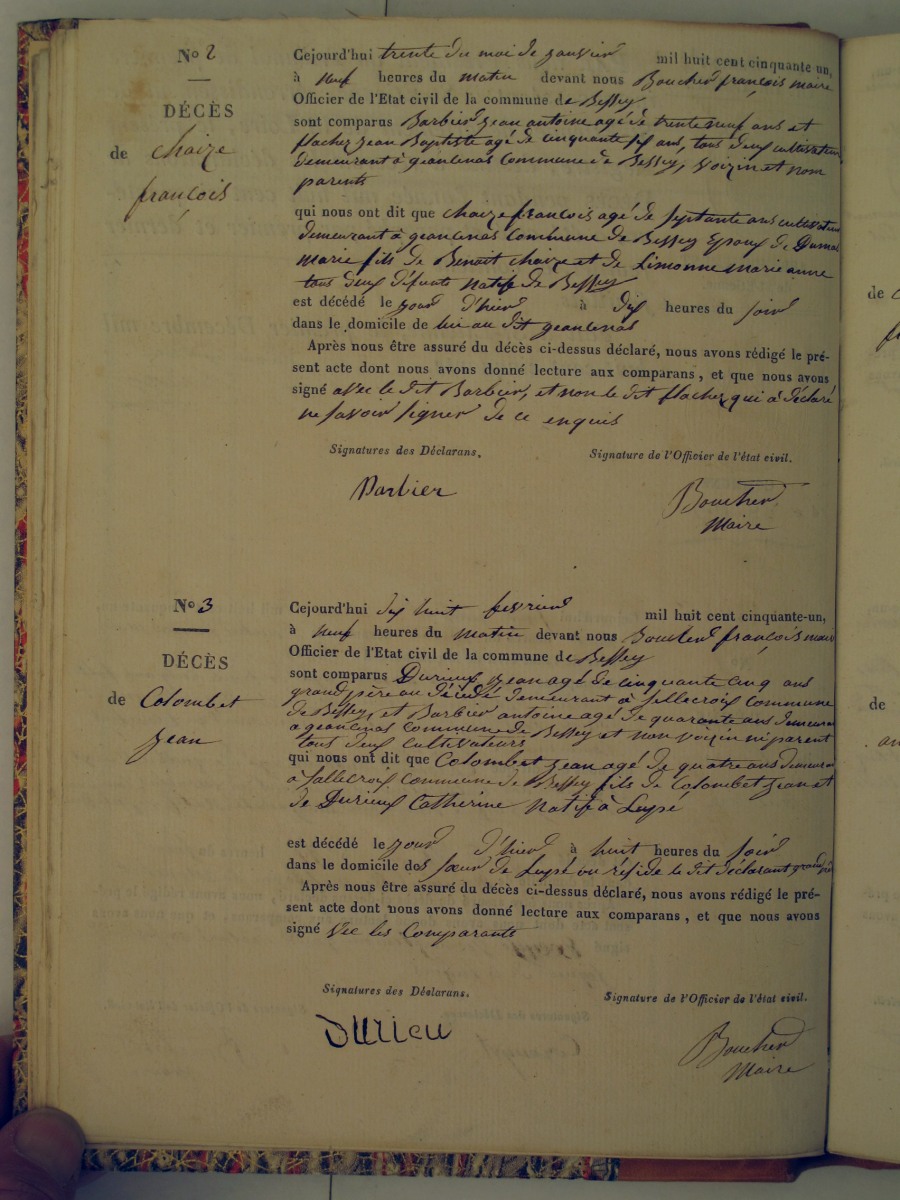 No 2
DÉCÈS
de Chaize
françois
Cejourd'hui trente du moi de janvier mil huit cent cinquante-un,
à neuf heures du matin devant nous Boucher françois maire
Officier de l'Etat civil de la commune de Bessey
sont comparus Barbier Jean antoine agé de trente neuf ans et
flachez Jean Baptiste agé de cinquante six ans, tous deux cultivateurs
demeurant à geanlinas Commune de Bessey, voizin et nom
parents
qui nous ont dit que Chaize francois agé de septante ans cultivateur
demeurant à geanlinas Commune de Bessey Epoux de Dumas
Marie fils de Benoit Chaize et de Limonne marie anne
tous deux défunts natif de Bessey
est décédé le jour d'hier à dix heures du soir
dans le domicile de lui au dit geanlinas
Après nous être assuré du décès ci-dessus déclaré, nous avons rédigé le pré-
sent acte dont nous avons donné lecture aux comparans, et que nous avons
signé avec le dit Barbier, et non le dit flachez qui à déclaré
ne savoir signer de ce enquis
Signatures des Déclarans. Signature de l'Officier de l'état civil.
Barbier Boucher
Maire
No 3
DÉCÈS
de Colombet
Jean
Cejourd'hui dix huit fevrier mil huit cent cinquante-un,
à neuf heures du matin devant nous Boucher françois maire
Officier de l'Etat civil de la commune de Bessey
sont comparus Durieux Jean agé de cinquante cinq ans
grand père au décédé demeurant à fallecroix Commune
de Bessey, et Barbier antoine agé de quarante ans demeurant
a geanlinas Commune de Bessey et non voizin ni parent
tous deux Cultivateurs
qui nous ont dit que Colombet Jean agé de quatre ans demeurant
à fallecroix Commune de Bessey fils de Colombet Jean et
de Durieux Catherine natif à Lupé
est décédé le jour d'hier à huit heures du soir
dans le domicile des sœur de Lupé ou réside le dit déclarant grand père
Après nous être assuré du décès ci-dessus déclaré, nous avons rédigé le pré-
sent acte dont nous avons donné lecture aux comparans, et que nous avons
signé vec les Comparants
Signatures des Déclarans. Signature de l'Officier de l'état civil.
Durieu Boucher
Maire
de
de